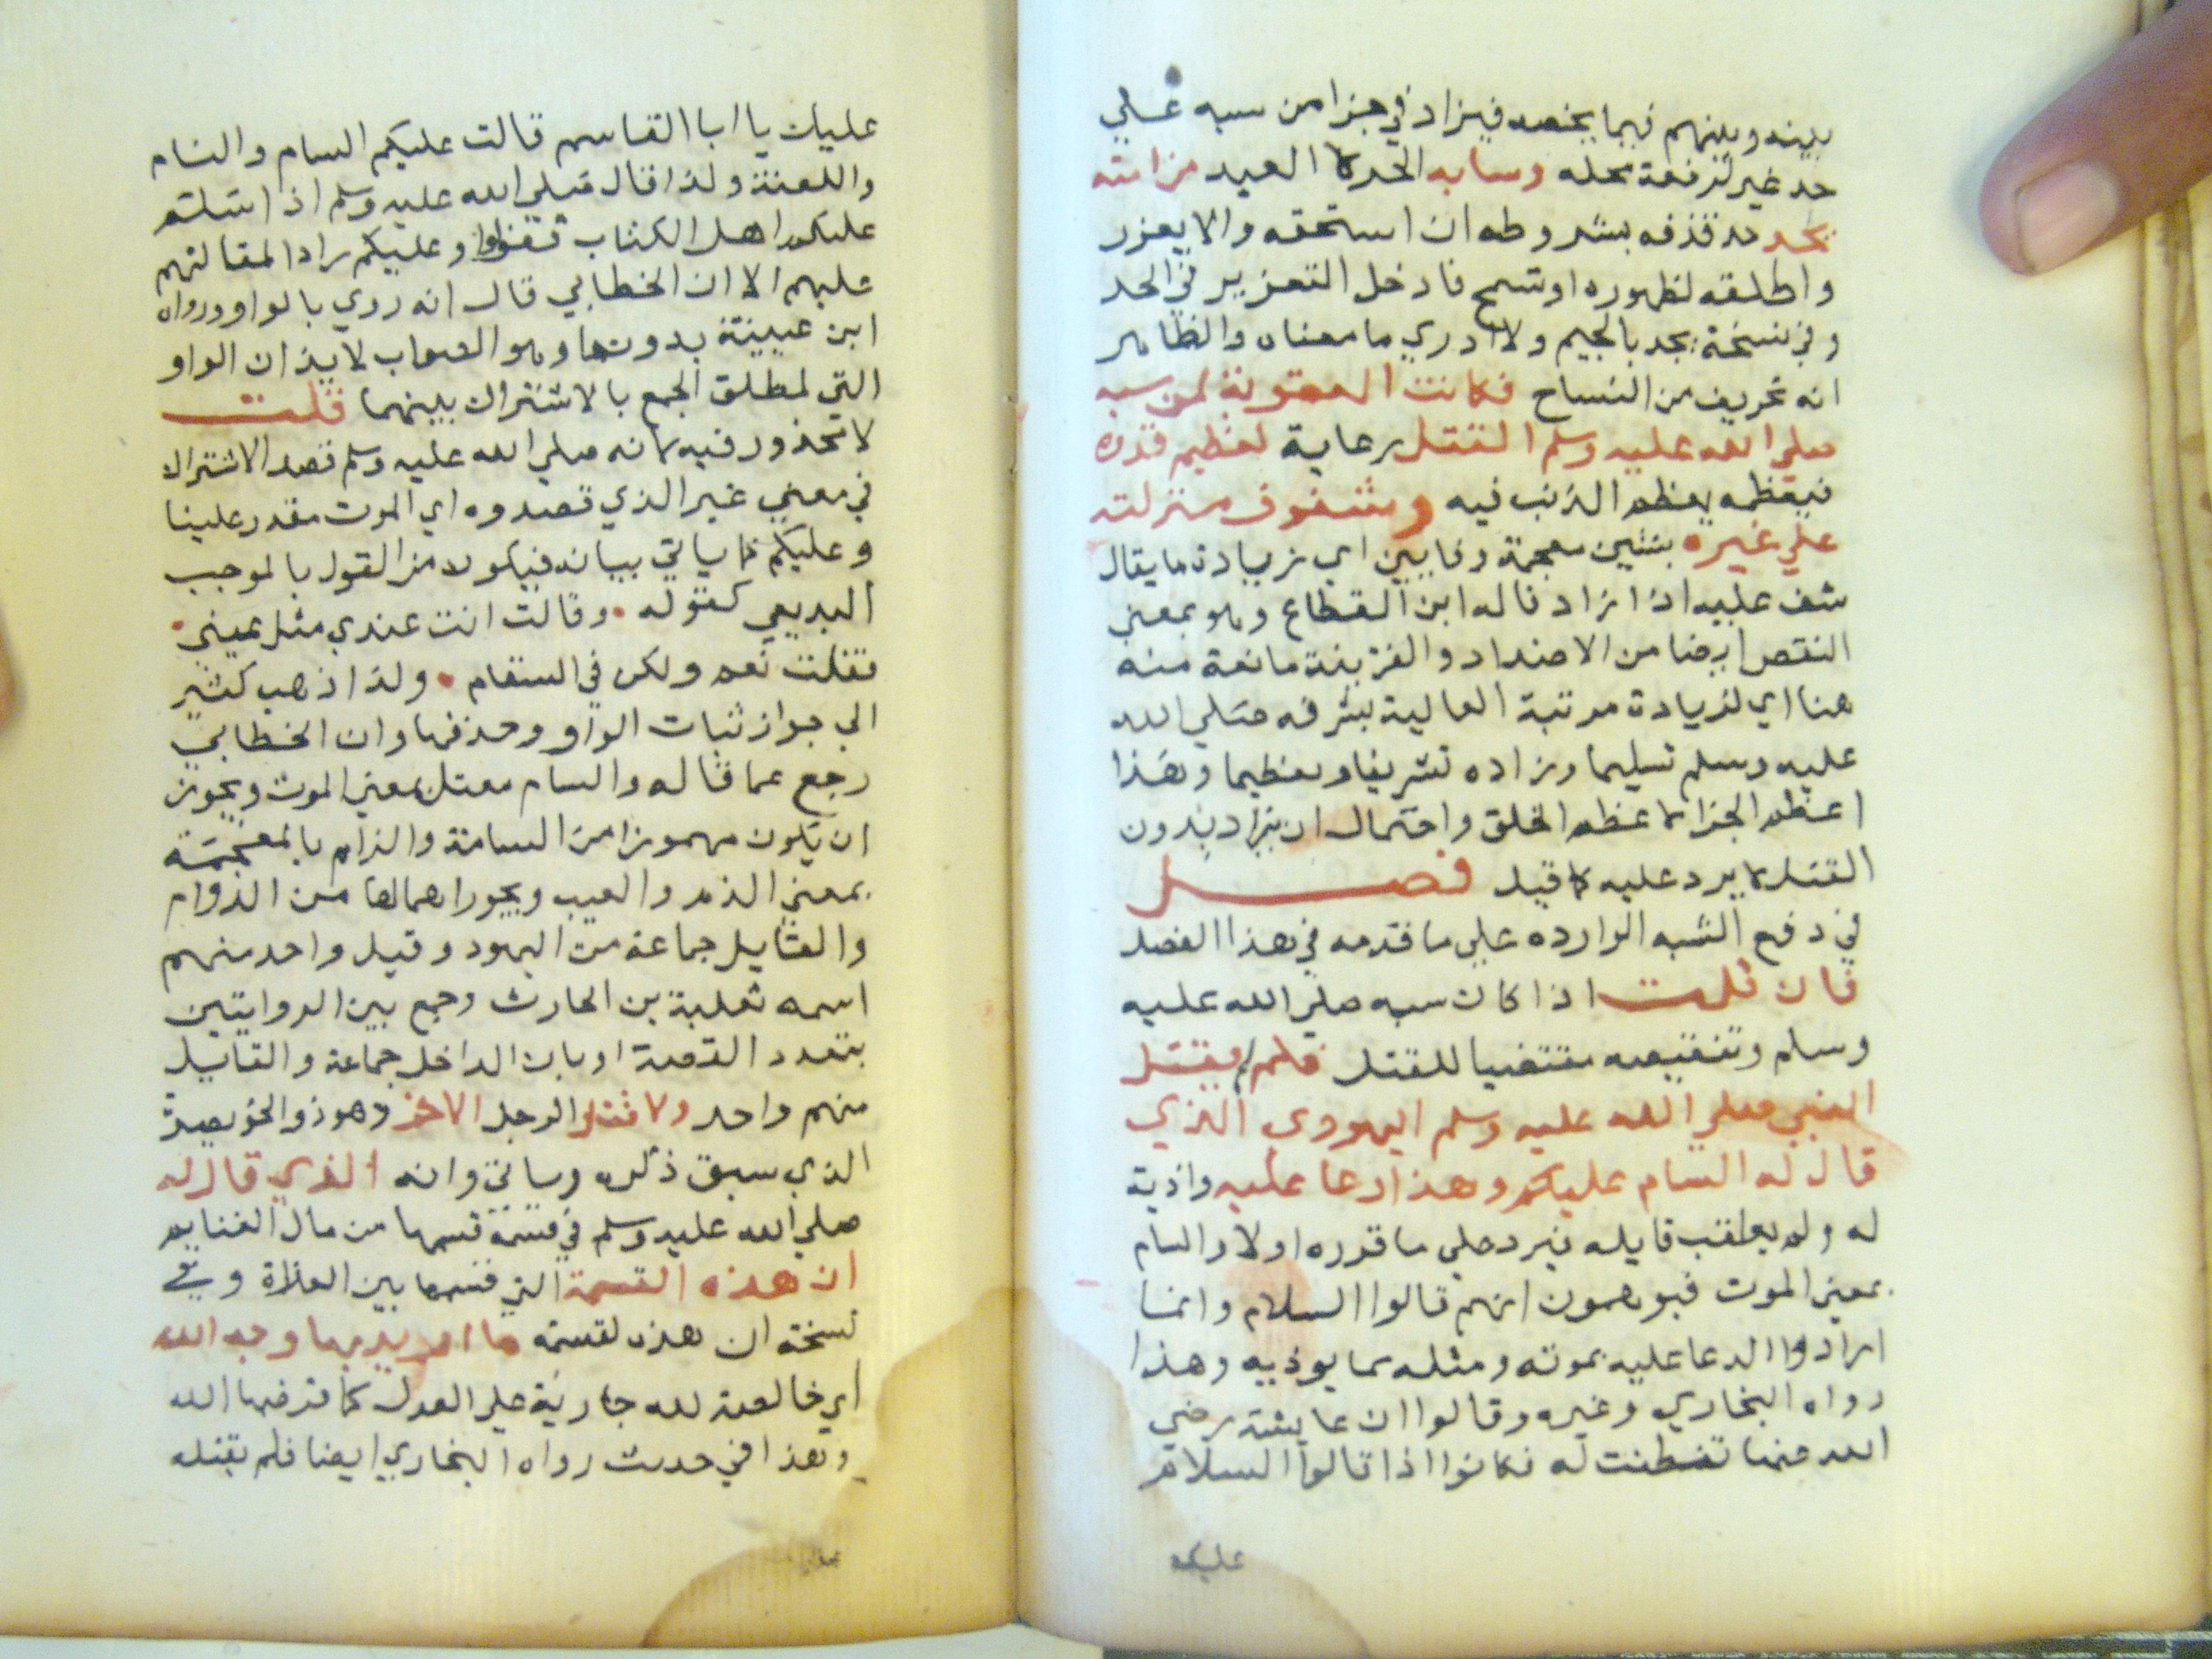 بينه وبينهم فيما يخصه فيزاد في جزا من سبه علي
حد غيره لرفعة محله وساب الحرة لا العبيد من امته
يحد حد قذفه بشروطه ان استحقه والا يعزر
واطلقه لظهوره او تسمح فادخل التعزير في الحد
وفي نسخة يجد بالجيم ولا ادري ما معناه والظاهر
انه تحريف من النساخ فكانت العقوبة لمن سبه
صلي الله عليه وسلم القتل رعاية لعظيم قدره
فبعظمه يعظم الذنب فيه وشفوف منزلته
علي غيره بشين معجمة وفايين اي زيادة ما يقال
شف عليه اذا زاد قاله ابن القطاع وهو بمعني
النقص ايضا من الاضداد والقرينة مانعة منه
هنا اي لزيادة مرتبة العالية بشرفه صلي الله
عليه وسلم تسليما وزاده تشريفا وتعظيما وهذا
اعظم الجزا لاعظم الخلق واحتمال ان يزاد بدون
القتل لا يرد عليه كما قيل فصل
في دفع الشبه الوارده علي ما قدمه في هذا الفصل
فان قلت اذا كان سبه صلي الله عليه
وسلم وتنقيصه مقتضيا للقتل فلم لم يقتل
النبي صلي الله عليه وسلم اليهودي الذي
قال له السام عليكم وهذا دعا عليه واذية
له ولم يعاقب قايله فيرد علي ما قرره اولا والسام
بمعني الموت فيوهمون انهم قالوا السلام وانما
ارادوا الدعا عليه بموته ومثله مما يوذيه وهذا
رواه البخاري وغيره وقالوا ان عايشة رضي
الله عنها تفطنت له فكانوا اذا قالوا السلام
عليكم
عليك يا ابا القاسم قالت عليكم السام والسام
واللعنة ولذا قال صلي الله عليه وسلم اذا سلم
عليكم اهل الكتاب فقولوا وعليكم رادا لمقالتهم
عليهم الا ان الخطابي قال انه روي بالواو ورواه
ابن عيينة بدونها وهو الصواب لايذان الواو
التي لمطلق الجمع بالاشتراك بينهما قلت
لا محذور فيه لانه صلي الله عليه وسلم قصد الاشتراك
في معني غير الذي قصدوه اي الموت مقدر علينا
وعليكم كما ياتي بيانه فيكون من القول بالموجب
البديعي كقوله وقالت انت عندي مثل عيني
فقلت نعم ولكن في السقام ولذا ذهب كثير
الي جواز ثبات الواو وحذفها وان الخطابي
رجع عما قاله والسام معتل بمعني الموت ويجوز
ان يكون مهموزا من السامة والذام بالمعجمة
بمعني الذم والعيب ويجوز اهمالها من الدوام
والقايل جماعة من اليهود وقيل واحد منهم
اسمه ثعلبة بن الحارث وجمع بين الروايتين
بتعدد القصة او بان الداخل جماعة والقايل
منهم واحد ولا قتل الرجل الاخر وهو ذو الخويصرة
الذي سبق ذكره وساتي وانه الذي قال له
صلي الله عليه وسلم في قسمة قسمها من مال الغنايم
ان هذه القسمة التي قسمها بين الغزاة وفي
نسخة ان هذه لقسمة ما اريد بها وجه الله
اي خالصة لله جارية علي العدل كما فرضها الله
وهذا في حديث رواه البخاري ايضا فلم يقتله